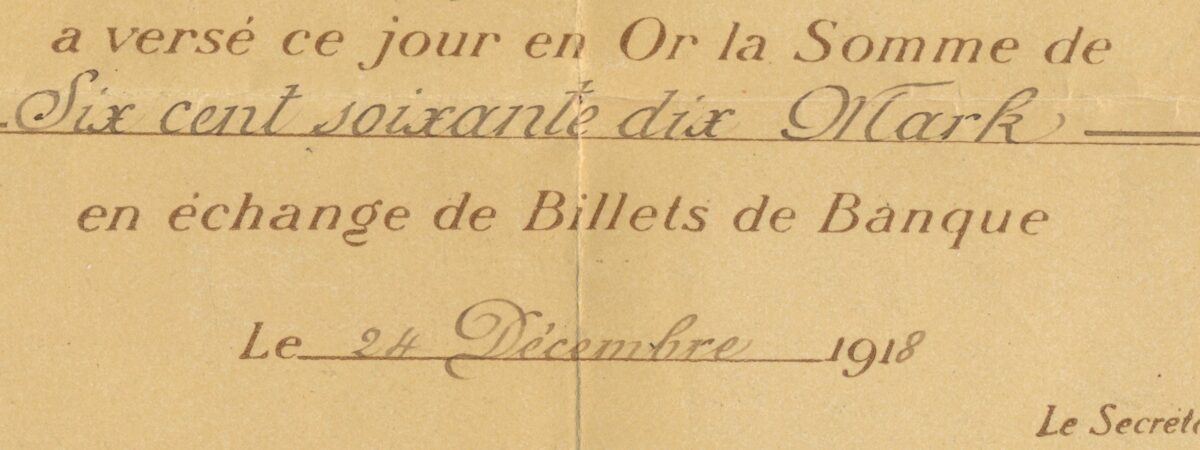 a versé ce jour en Or la Somme de
Six cent soixante dix Mark
en échange de Billets de Banque
Le 24 Décembre 1918
Le Secréta